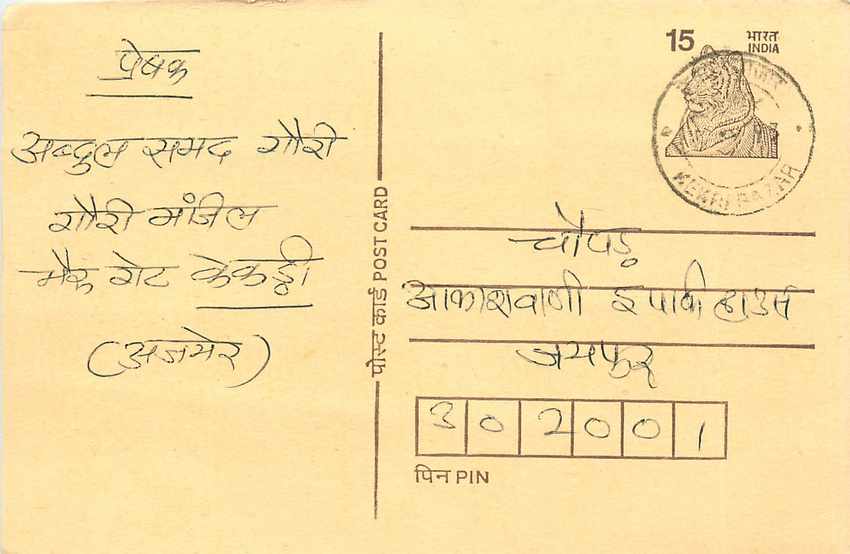 प्रेषक
अब्दुल समद गौरी
गौरी मंजिल
भैरू गेट केकड़ी
(अजमेर)
पोस्ट कार्ड POST CARD
15
भारत
INDIA
BAZAR
चौपड़
आकाशवाणी
जयपुर
302001
पिन PIN